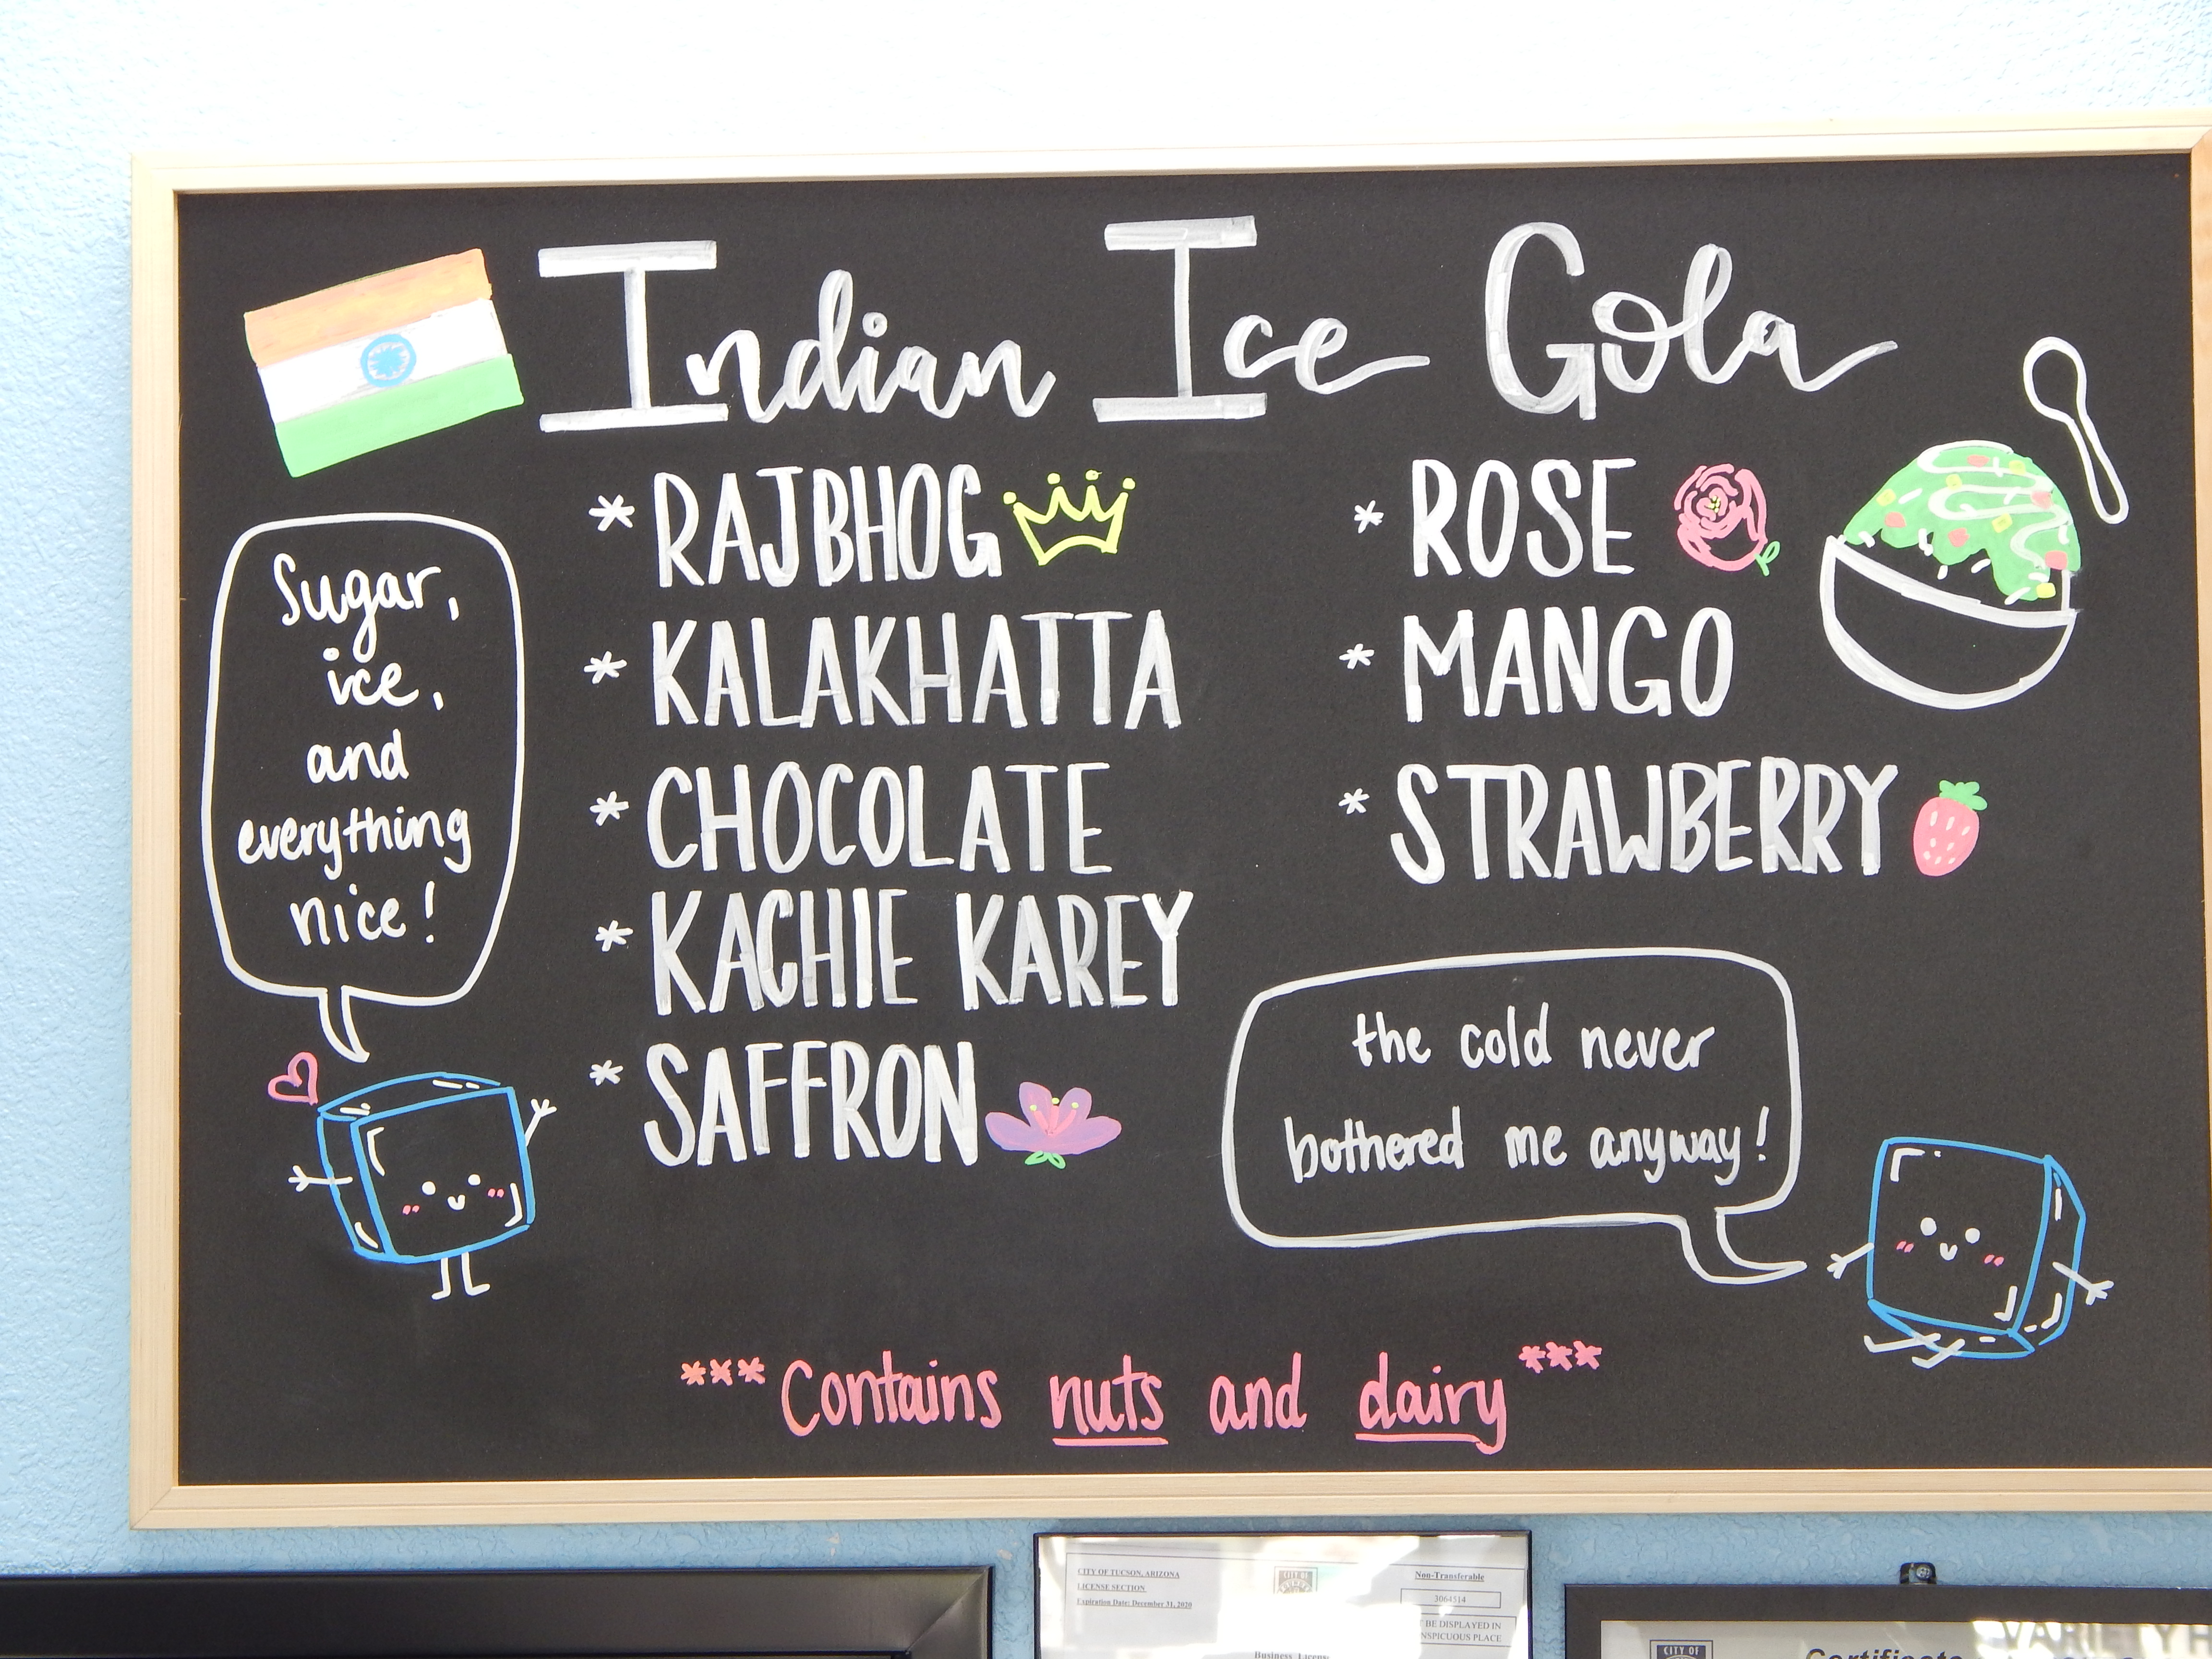 Indian Ice Gola
* RAJBHOG
* KALAKHATTA
* CHOCOLATE
* KACHIE KAREY
* SAFFRON
* ROSE
* MANGO
* STRAWBERRY
Sugar,
ice,
and
everything
nice!
the cold never
bothered me anyway!
***Contains nuts and dairy***
CITY OF TUCSON, ARIZONA
LICENSE SECTION
Expiration Date: December 31, 2020
CITY OF
Non-Transferable
3064514
BE DISPLAYED IN
NSPICUOUS PLACE
Business License
CITY OF
Certificate